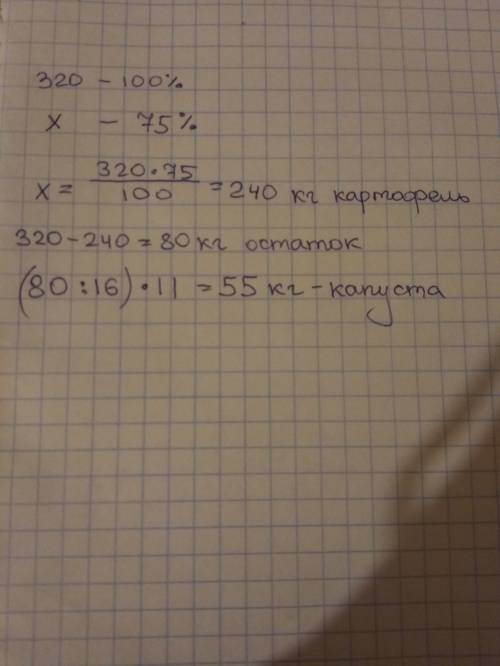 320 – 100%
x – 75%
x = 320·75/100 = 240 кг картофель
320-240 = 80 кг остаток
(80:16)·11 = 55 кг – капуста